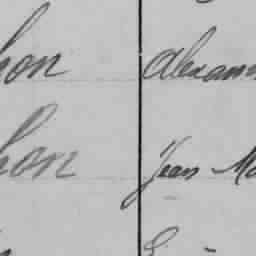 hon Alexan
hon Jean Ma